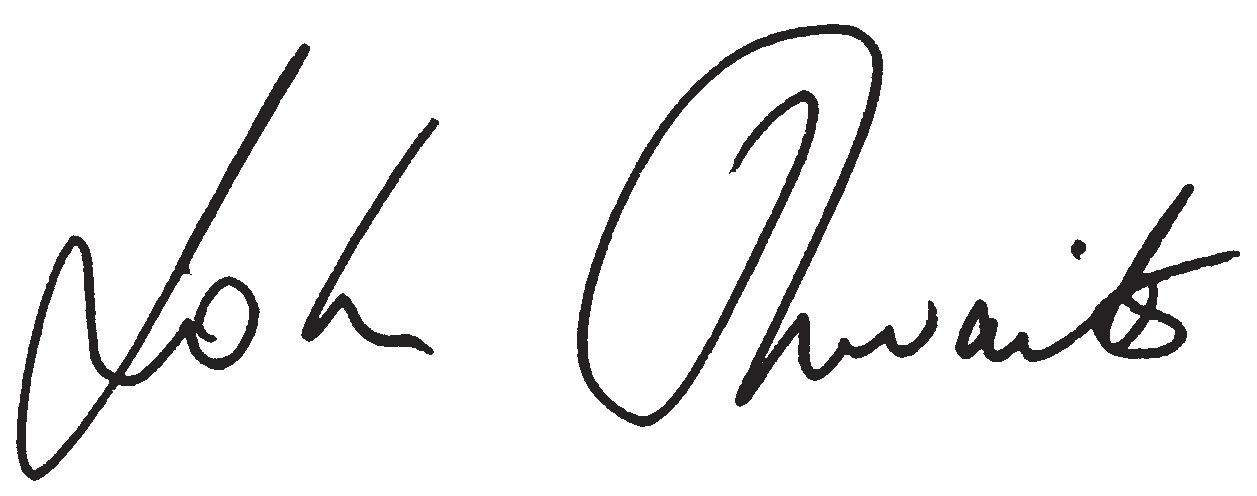 John Thwaits